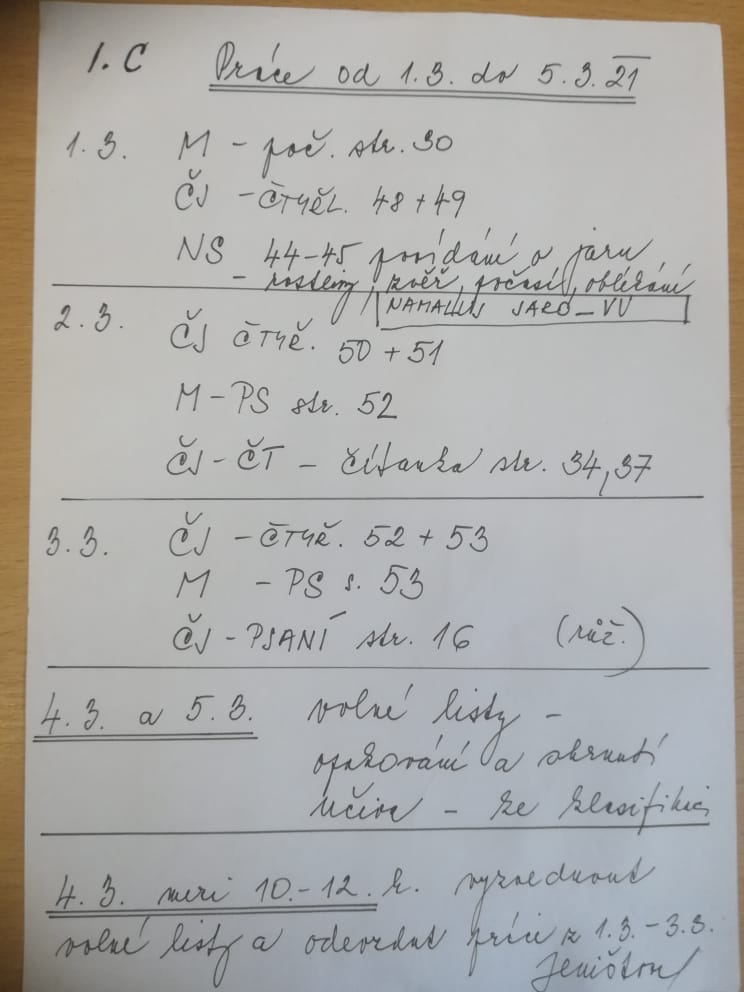 1.C Práce od 1.3. do 5.3.21
1.3. M - poč. str. 30
ČJ - ČTMĚL. 48+49
NS 44-45 povídání o jaru
- rostliny, zvěř, počasí, oblékání
NAMALUJ JARO - VV
2.3. ČJ ČTMĚ. 50+51
M - PS str. 52
ČJ - ČT - čítanka str. 34,37
3.3. ČJ - ČTMĚ. 52+53
M - PS s. 53
ČJ - PSANÍ str. 16 (růž.)
4.3. a 5.3. volné listy -
opakování a shrnutí
učiva - ke klasifikaci
4.3. mezi 10.-12. h. vyzvednout
volné listy a odevzdat práci z 1.3.-3.3.